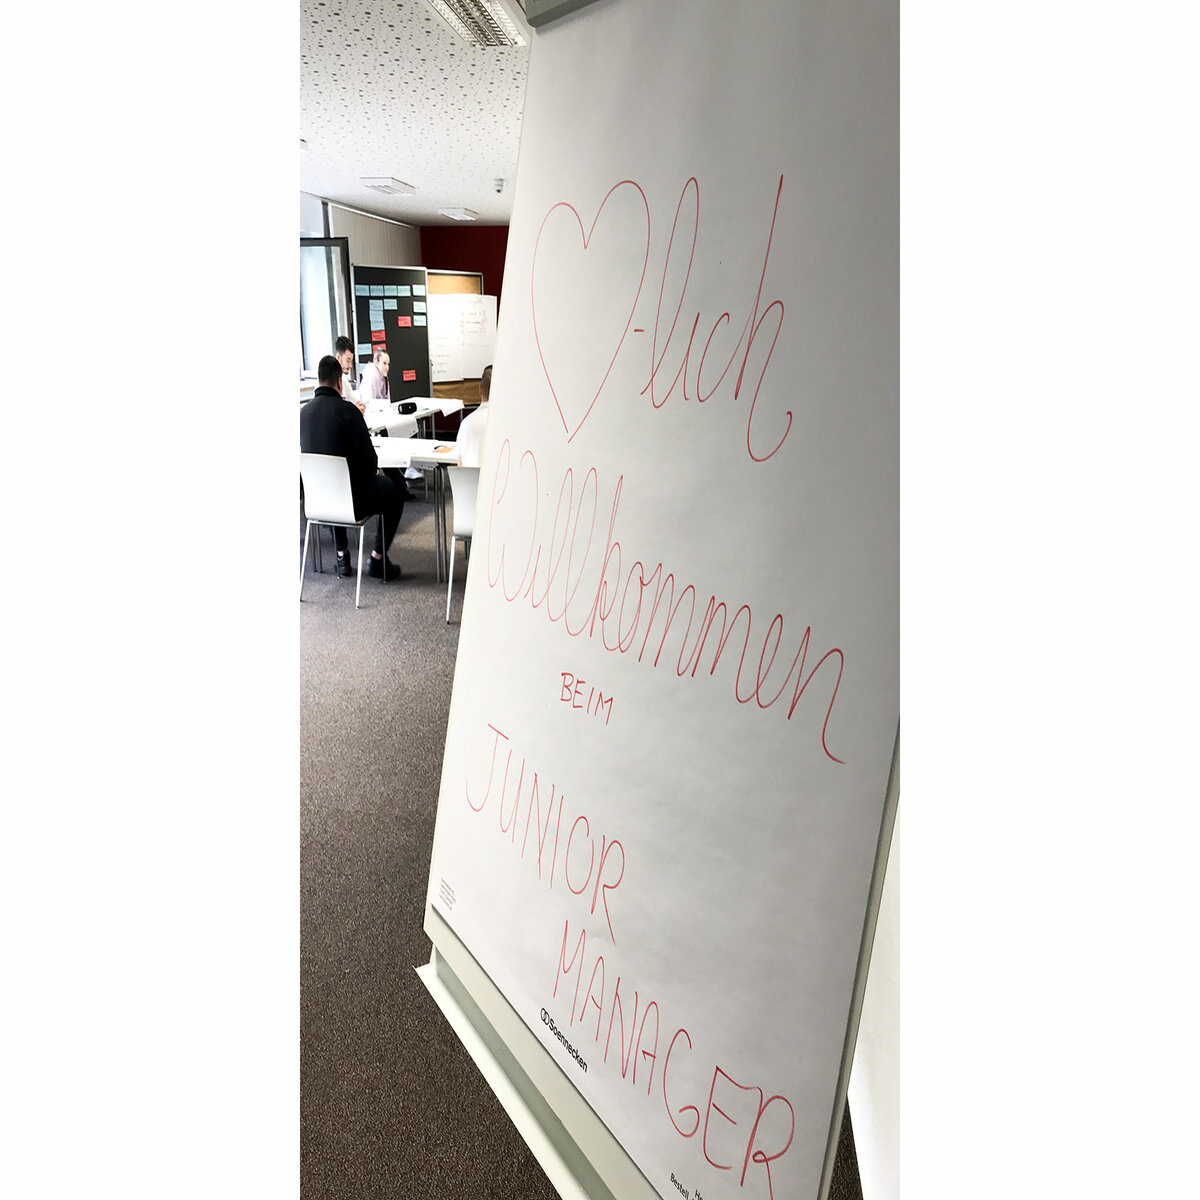 ♥-lich
Willkommen
BEIM
JUNIOR
MANAGER
Soennecken
Bestell